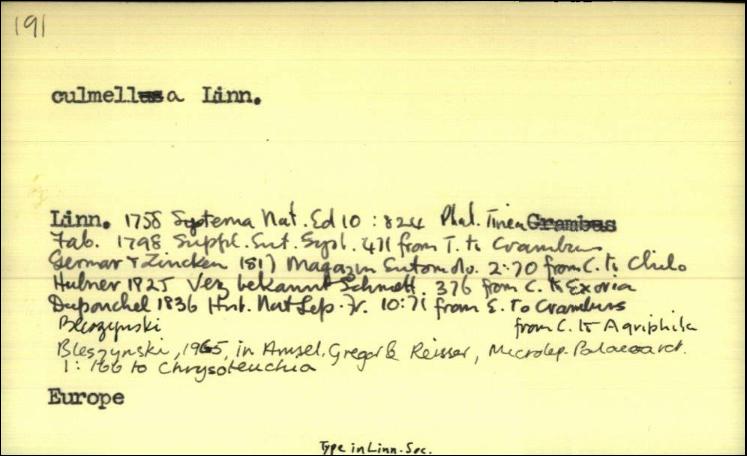 191
culmellusa Linn.
Linn. 1758 Systema Nat. Ed 10 : 824 Phal. Tinea Crambus
Fab. 1798 Suppl. Ent. Syst. 471 from T. to Crambus
Germar & Zincken 1817 Magazin Entom. 2:70 from C. to Chilo
Hubner 1825 Verz bekannt Schmett. 376 from C. to Exoria
Duponchel 1836 Hist. Nat Lep. Fr. 10:71 from E. To Crambus
Bleszynski from C. to Agriphila
Bleszynski, 1965, in Amsel, Gregor & Reisser, Microlep. Palaearct.
1 : 166 to Chrysoteuchia
Europe
Type in Linn. Soc.